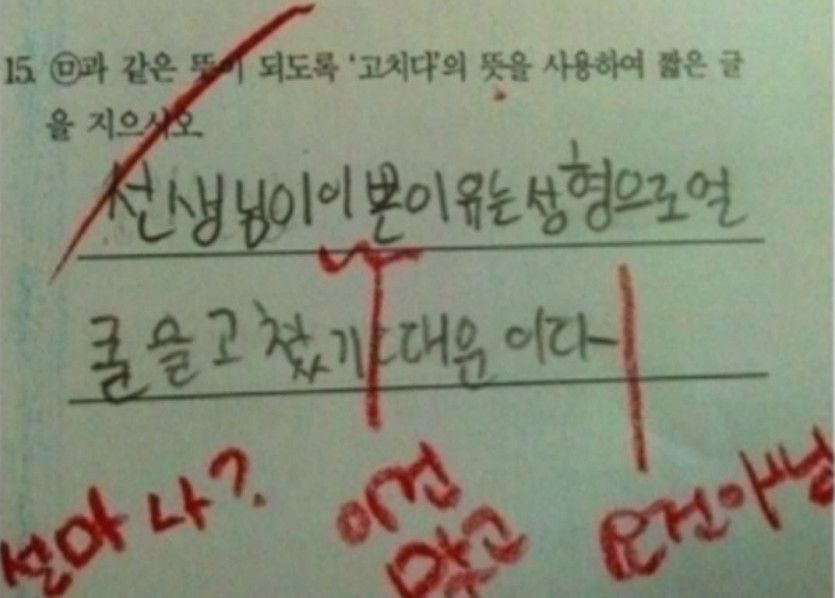 15. ㉤과 같은 뜻이 되도록 '고치다'의 뜻을 사용하여 짧은 글
을 지으시오.
선생님이 이쁜이유는 성형으로 얼
굴을 고쳤기 때문이다
설마 나?
이건
맞고
요건 아냐